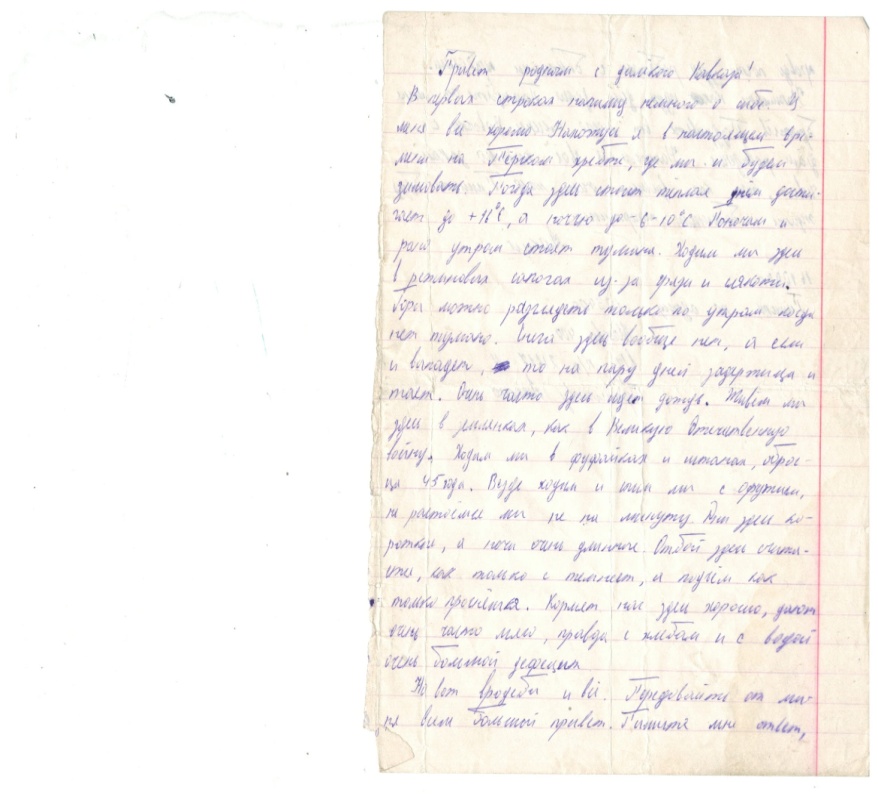 Привет родным с далёкого Кавказа!
В первых строках напишу немного о себе. У
меня всё хорошо. Нахожусь я в настоящем вре-
мени на Терском хребте, где мы и будем
зимовать. Погода здесь стоит тёплая днём дости-
гает до +16°С, а ночью до -8-10°С По ночам и
рано утром стоят туманы. Ходим мы здесь
в резиновых сапогах из-за грязи и слякоти.
Горы можно разглядеть только по утрам когда
нет тумана. Снега здесь вообще нет, а если
и выпадет, то на пару дней задержится и
тает. Очень часто здесь идёт дождь. Живём мы
здесь в землянках, как в Великую Отечественную
войну. Ходим мы в фуфайках и штанах, образ-
ца 45 года. Везде ходим и спим мы с оружием,
не расстаёмся мы не на минуту. Дни здесь ко-
роткие, а ночи очень длинные. Отбой здесь счита-
ется, как только стемнеет, а подъём как
только просветлеет. Кормят нас здесь хорошо, дают
очень часто мясо, правда с хлебом и с водой
очень большой дефецит
Ну вот вроде бы и всё. Передавайте от ме-
ня всем большой привет. Пишите мне ответ,